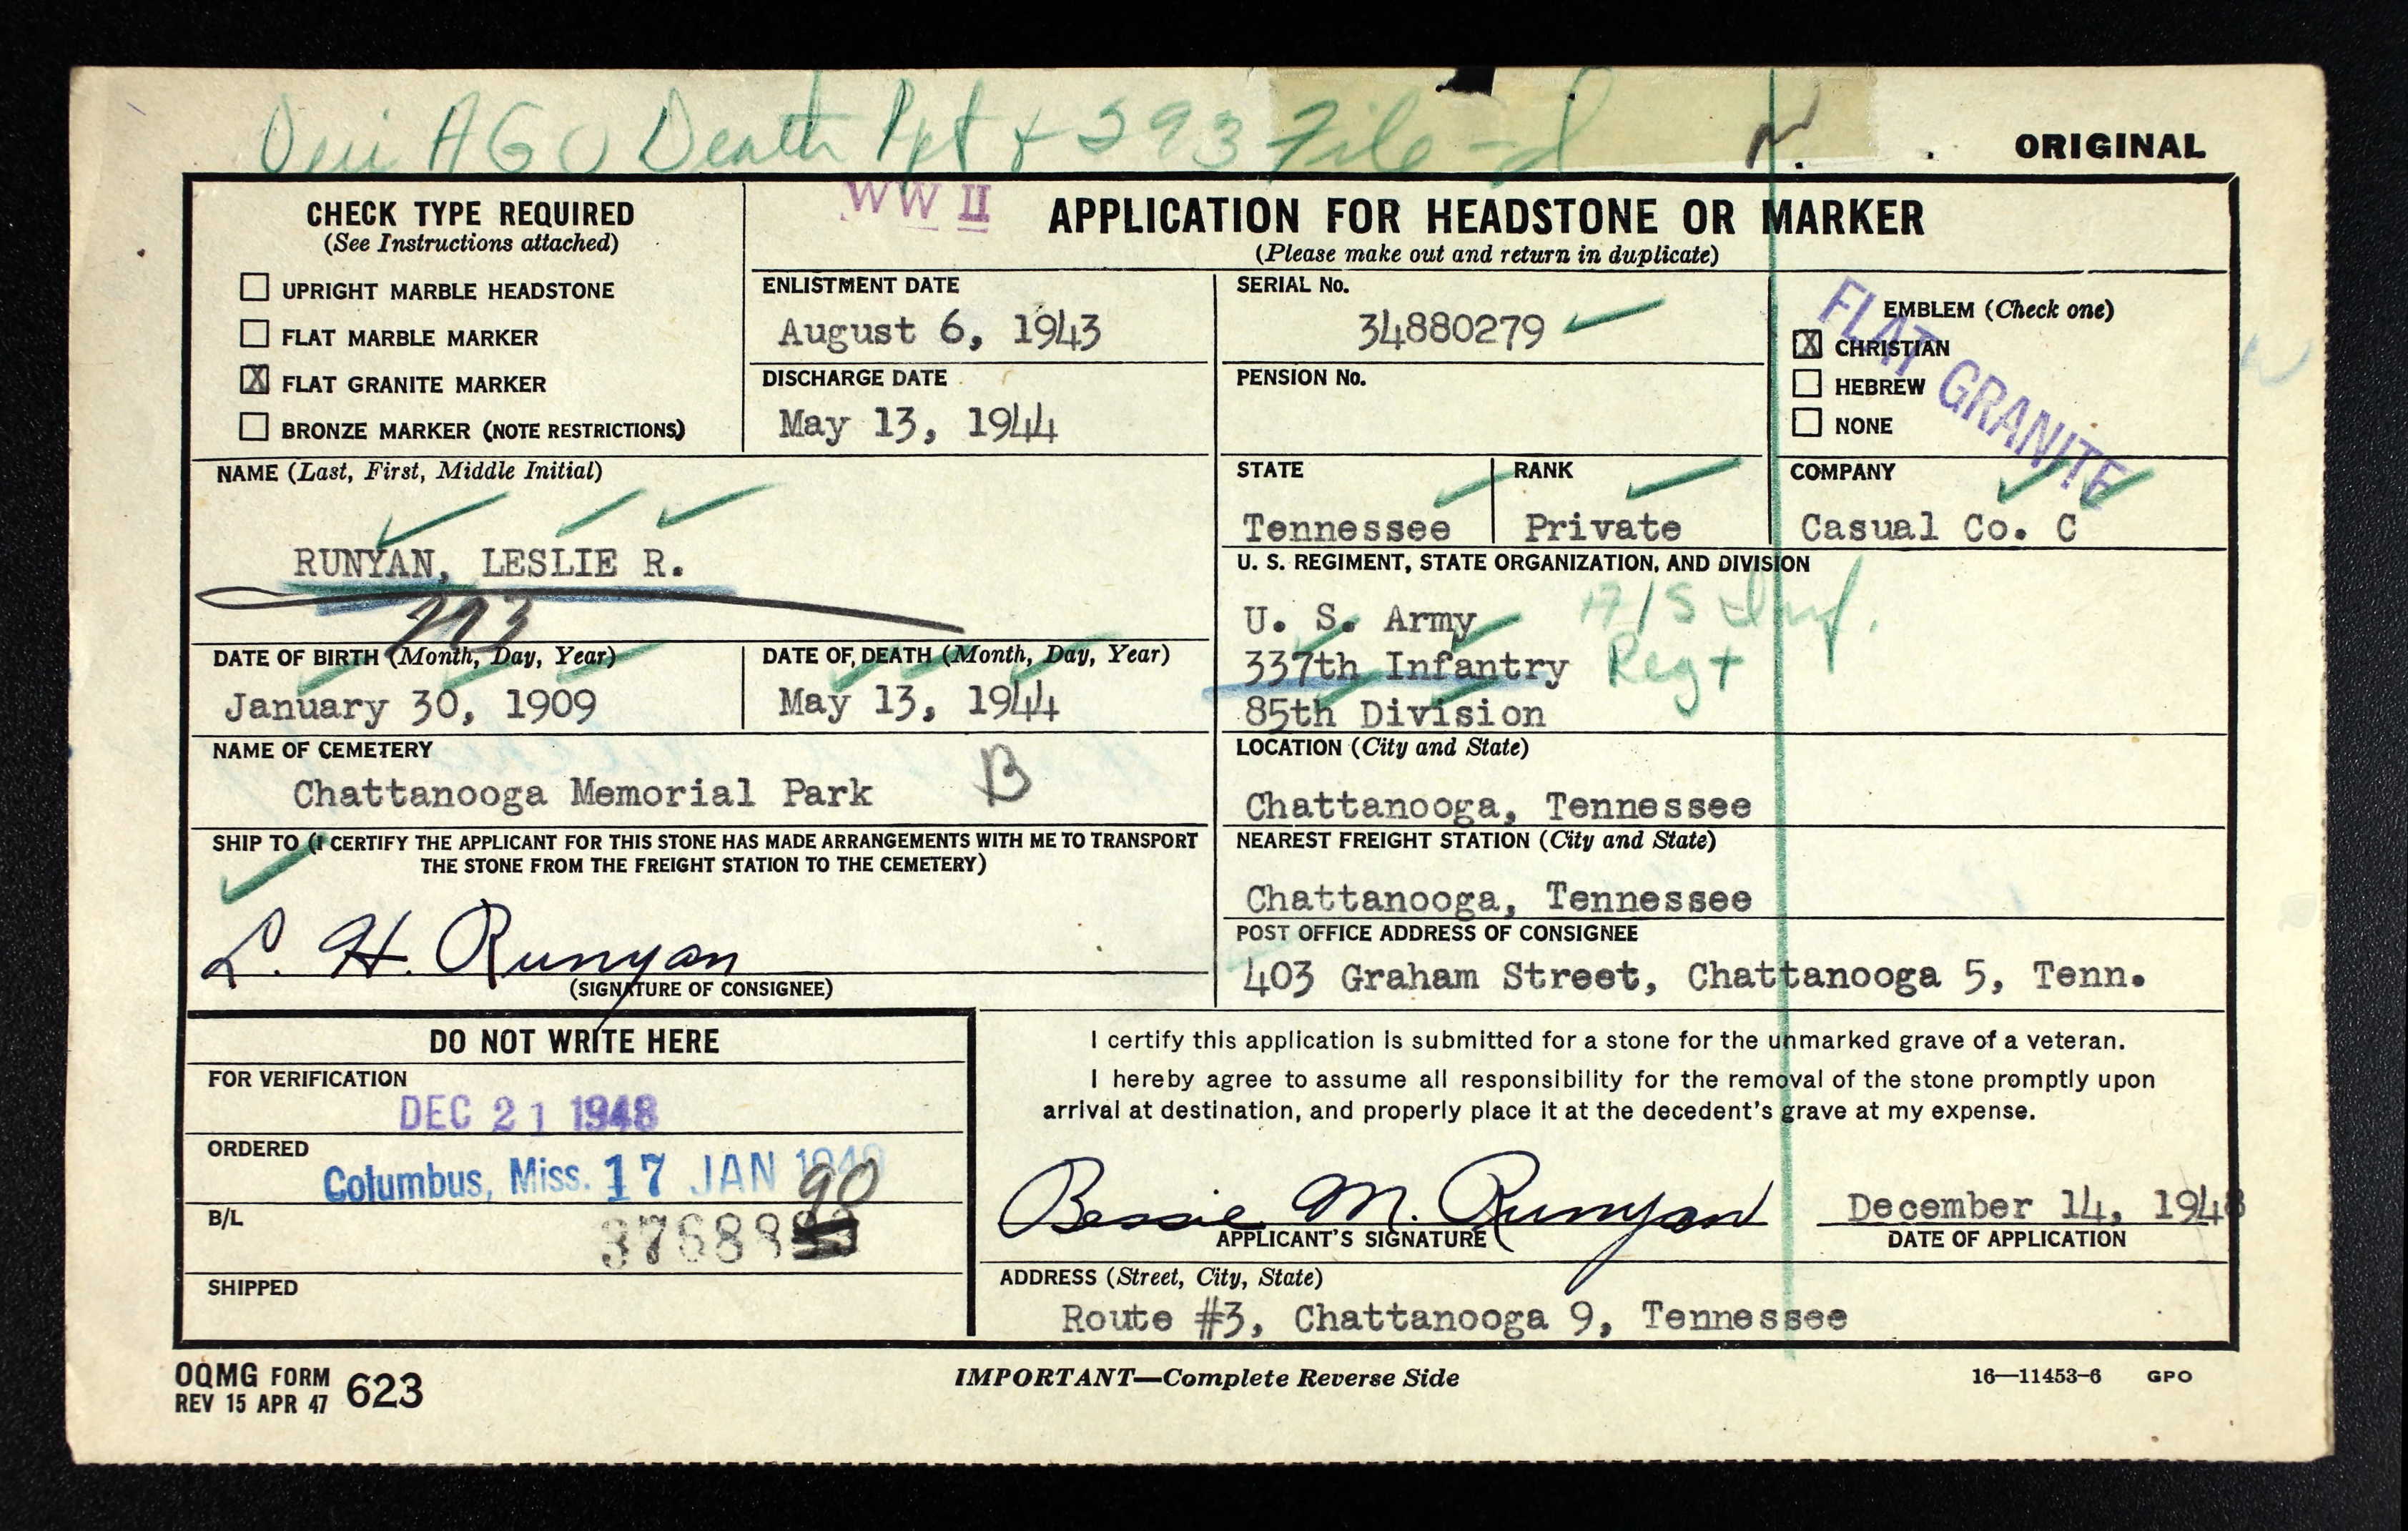 AGO Death Rpt + 293 File
ORIGINAL
WW II
CHECK TYPE REQUIRED
(See Instructions attached)
UPRIGHT MARBLE HEADSTONE
FLAT MARBLE MARKER
X FLAT GRANITE MARKER
BRONZE MARKER (NOTE RESTRICTIONS)
APPLICATION FOR HEADSTONE OR MARKER
(Please make out and return in duplicate)
ENLISTMENT DATE
August 6, 1943
DISCHARGE DATE
May 13, 1944
SERIAL No.
34880279
PENSION No.
EMBLEM (Check one)
X CHRISTIAN
HEBREW
NONE
FLAT GRANITE
NAME (Last, First, Middle Initial)
RUNYAN, LESLIE R.
STATE
Tennessee
RANK
Private
COMPANY
Casual Co. C
U. S. REGIMENT, STATE ORGANIZATION, AND DIVISION
U. S. Army
337th Infantry Regt
85th Division
DATE OF BIRTH (Month, Day, Year)
January 30, 1909
DATE OF DEATH (Month, Day, Year)
May 13, 1944
NAME OF CEMETERY
Chattanooga Memorial Park B
LOCATION (City and State)
Chattanooga, Tennessee
SHIP TO (I CERTIFY THE APPLICANT FOR THIS STONE HAS MADE ARRANGEMENTS WITH ME TO TRANSPORT
THE STONE FROM THE FREIGHT STATION TO THE CEMETERY)
L. H. Runyan
(SIGNATURE OF CONSIGNEE)
NEAREST FREIGHT STATION (City and State)
Chattanooga, Tennessee
POST OFFICE ADDRESS OF CONSIGNEE
403 Graham Street, Chattanooga 5, Tenn.
DO NOT WRITE HERE
FOR VERIFICATION
DEC 21 1948
ORDERED
Columbus, Miss. 17 JAN 1949
B/L
37688 90
SHIPPED
I certify this application is submitted for a stone for the unmarked grave of a veteran.
I hereby agree to assume all responsibility for the removal of the stone promptly upon
arrival at destination, and properly place it at the decedent's grave at my expense.
Bessie M. Runyan
APPLICANT'S SIGNATURE
December 14, 1948
DATE OF APPLICATION
ADDRESS (Street, City, State)
Route #3, Chattanooga 9, Tennessee
OQMG FORM 623
REV 15 APR 47
IMPORTANT—Complete Reverse Side
16—11453-6 GPO